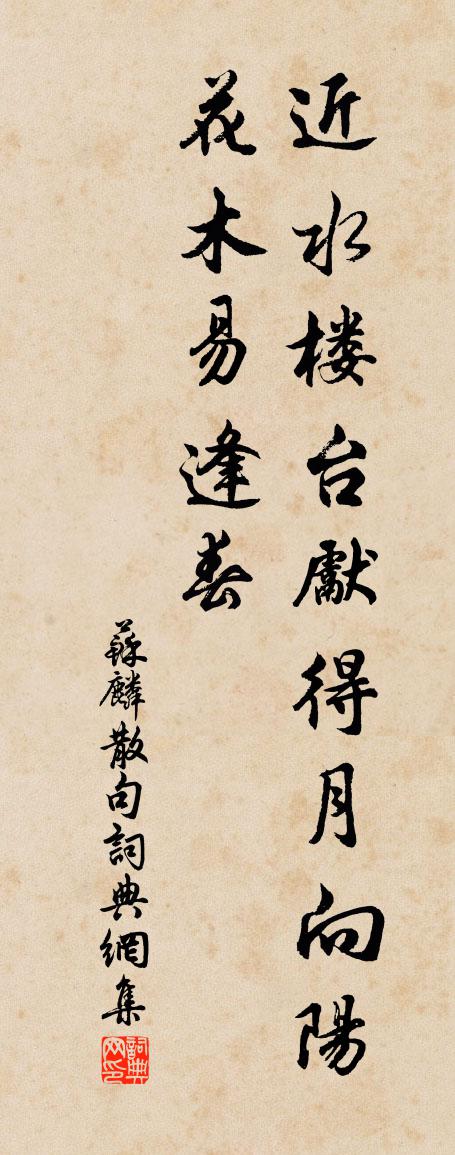 近水楼台獻得月向陽
花木易逢春
蘇麟散句詞典網集
詞典
网印